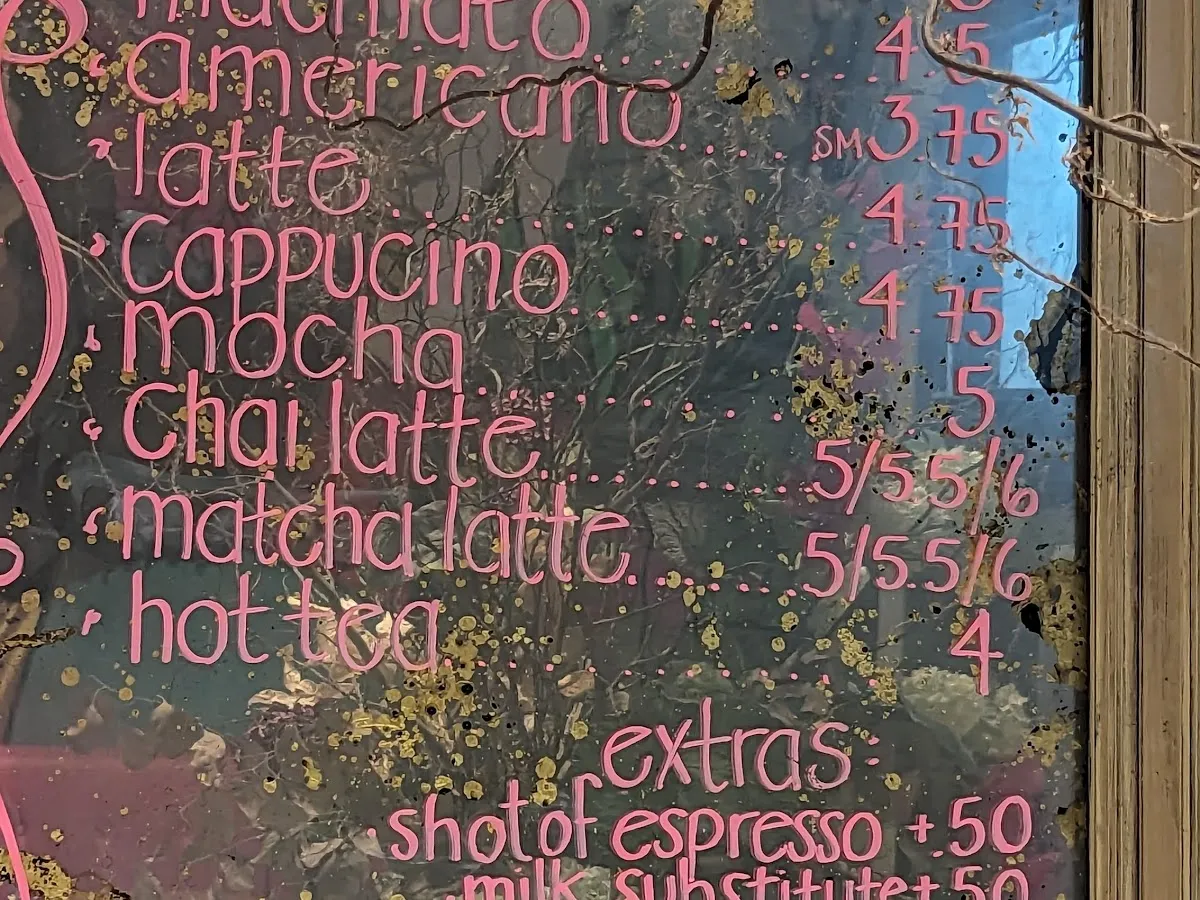 machiato.......4.5
americano.....SM 3.75
latte..........4.75
Cappucino........4.75
mocha..........5
Chai latte.........5/5.5/6
matcha latte.....5/5.5/6
hot tea.........4
extras:
shot of espresso +.50
milk substitute +.50